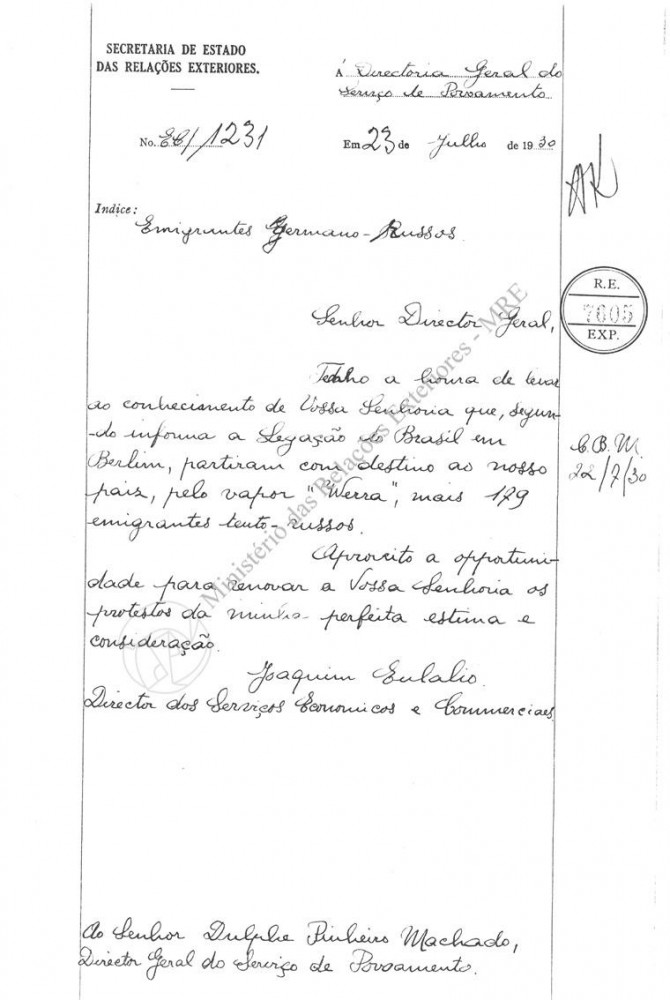 SECRETARIA DE ESTADO
DAS RELAÇÕES EXTERIORES.
Á Directoria Geral do
Serviço de Povoamento
No. EC/1231
Em 23 de Julho de 1930
Indice:
Emigrantes Germano-Russos.
R.E.
7605
EXP.
Senhor Director Geral,
Tenho a honra de levar
ao conhecimento de Vossa Senhoria que, segun-
-do informa a Legação do Brasil em
Berlim, partiram com destino ao nosso
paiz, pelo vapor "Werra", mais 179
emigrantes teuto-russos.
C.B.M.
22/7/30
Aproveito a opportuni-
dade para renovar a Vossa Senhoria os
protestos da minha perfeita estima e
consideração.
Joaquim Eulalio.
Director dos Serviços Economicos e Commerciaes.
Ao Senhor Dulphe Pinheiro Machado,
Director Geral do Serviço de Povoamento.
Ministério das Relações Exteriores - MRE